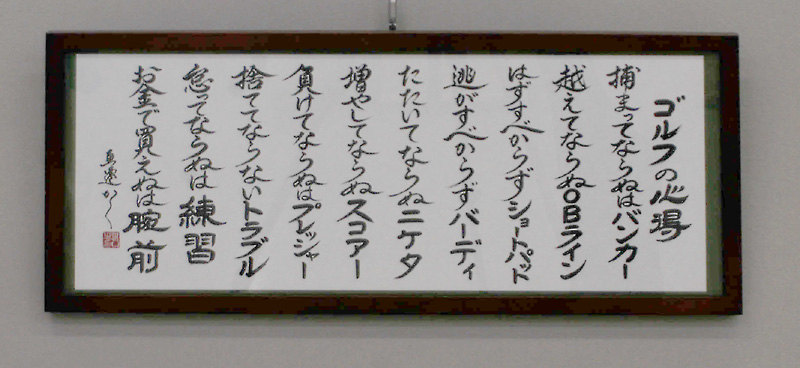 ゴルフの心得
捕まってならぬはバンカー
越えてならぬOBライン
はずすべからずショートパット
逃がすべからずバーディ
たたいてならぬニケタ
増やしてならぬスコアー
負けてならぬはプレッシャー
捨ててならないトラブル
怠ってならぬは練習
お金で買えぬは腕前